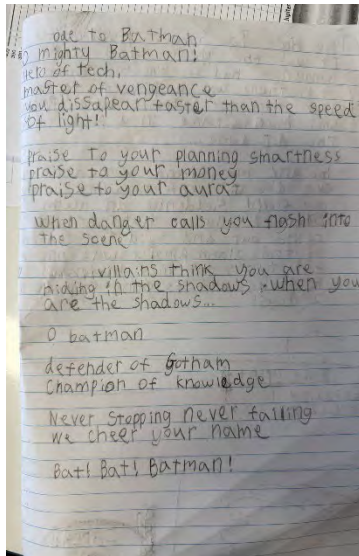 ode to Batman
O mighty Batman!
Hero of tech,
master of vengeance
you dissapear faster than the speed
of light!
praise to your planning smartness
praise to your money
praise to your aura
When danger calls you flash into
the scene
villains think you are
hiding in the shadows when you
are the shadows...
O batman
defender of Gotham
Champion of knowledge
Never stopping never failing
we cheer your name
Bat! Bat! Batman!